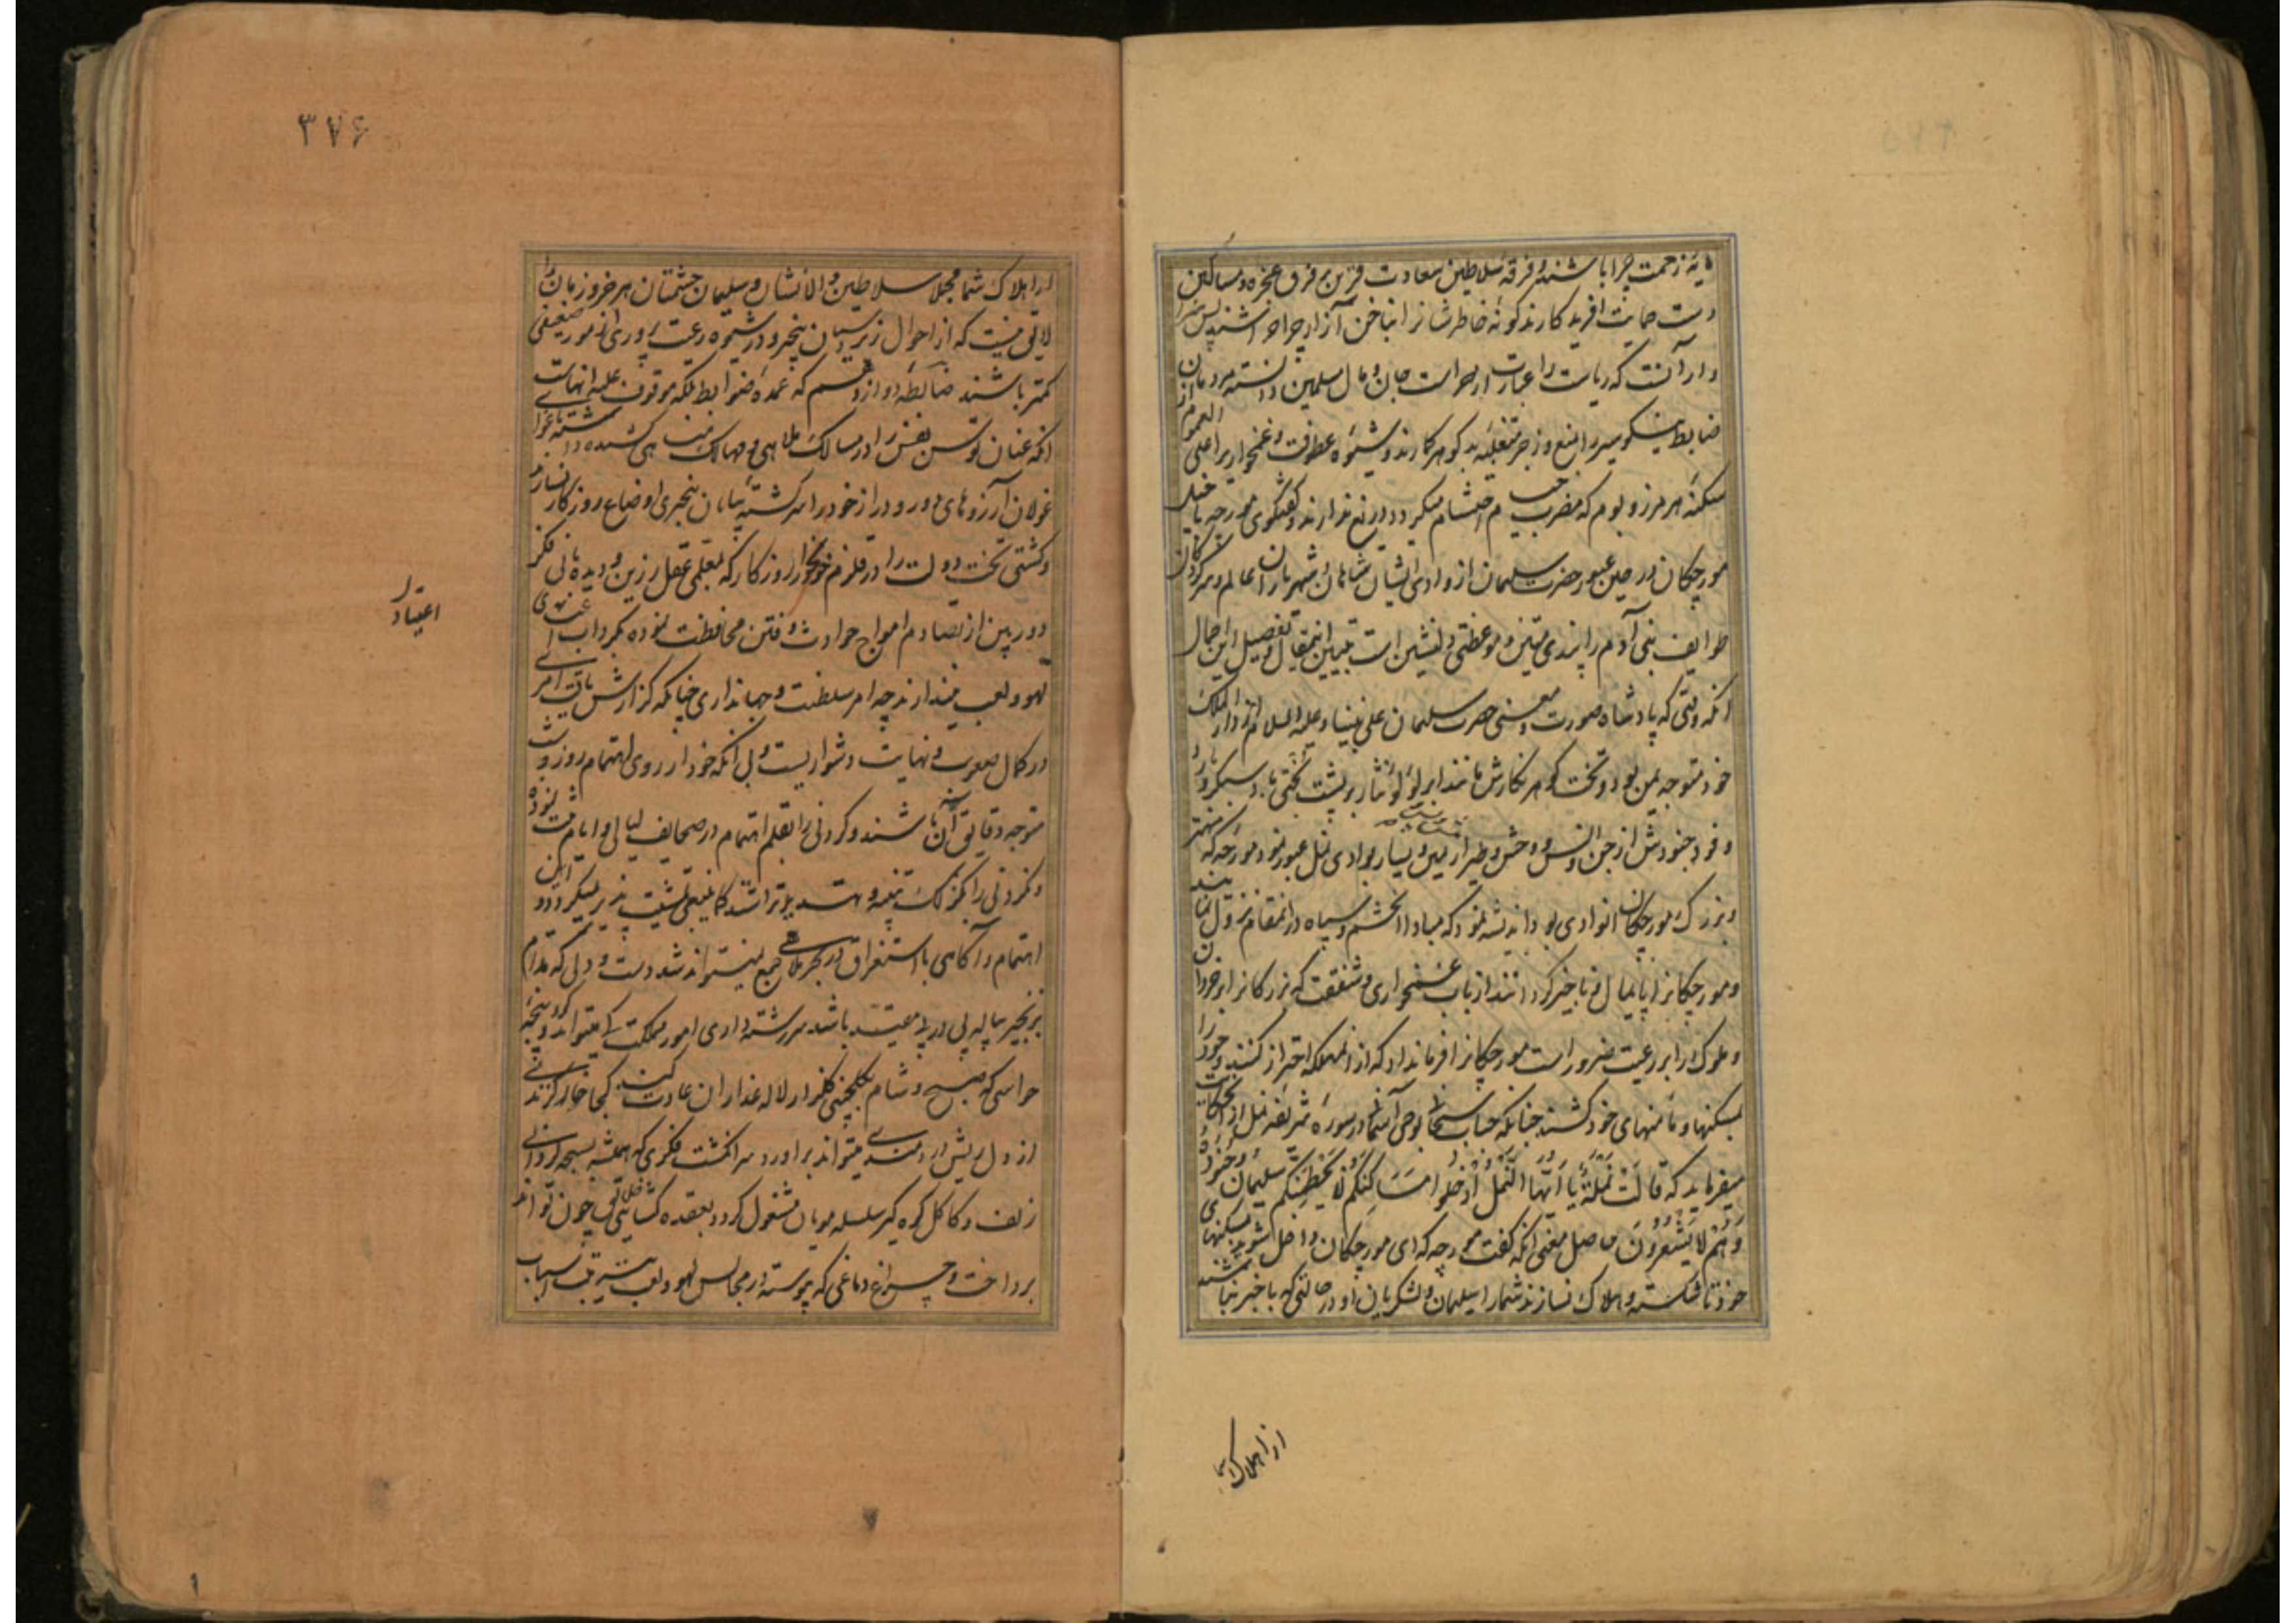 مایه زحمت چرا باشند و فرقه سلاطین سعادت قرین بر فرق عجزه و مساکین
دست حمایت افریدگارند گونه خاطرشانرا بناخن آزار چرا خراشند پس
آنست که ریاست را عبارت از حراست جان و مال مسلمین دانسته مردمان
ضابطه نیکو سیر را بمنع و زجر متغلبه بدگوهر گمارند و شیوه عطوفت و غمخواری بر اعلی العموم از
سکنه هر مرز و بوم که مضرب خیام احتشام میگردد دریغ ندارند و گفتگوی مورچه با خیل
مورچگان در حین عبور حضرت سلیمان از وادی ایشان شاهان و شهریاران عالم و سرکردگان
طوایف بنی آدم را پندی متین و موعظتی دلنشین است تبیین اینمقال و تفصیل این اجمال
آنکه وقتی که پادشاه صورت و معنی حضرت سلیمان علی نبینا و علیه السلام از دار الملک
خود متوجه یمن بود و تخت گوهر نگارش مانند ابر لؤلؤ نثار بر پشت باد سبکرو
وفود جنودش از جن و انس و وحش و طیر از یمین و یسار بوادی نمل عبور نمود مورچه که مهتر
و بزرگ مورچگان انوادی بود اندیشه نمود که مبادا انحشم و سپاه در انمقام نزول نمایند
و مورچگانرا پایمال و ناچیز گردانند از باب غمخواری و شفقت که بزرگانرا بر خردان
و ملوک را بر رعیت ضرور است مورچگانرا فرمانداد که از انمهلکه احتراز کنند و خود را
بمسکنها و مامنهای خود کشند چنانکه جناب سبحانی بوحی آسمانی در سوره شریفه نمل از انحکایت
میفرماید که قَالَتْ نَمْلَةٌ یَا أَیُّهَا النَّمْلُ ادْخُلُوا مَسَاکِنَکُمْ لَا یَحْطِمَنَّکُمْ سُلَیْمَانُ وَجُنُودُهُ
وَهُمْ لَا یَشْعُرُونَ حاصل معنی انکه گفت مورچه که ای مورچگان داخل شوید بمسکنهای
خود تا شکسته و هلاک نسازند شمارا سلیمان و لشکریان او در حالتی که با خبر نباشند
از اهلاک شما
۳۷۶
از اهلاک شما مجملا سلاطین والانشان و سلیمان حشمتان هر خرد زمان را
لایق نیست که از احوال زیردستان بیخبر و در شیوه رعیت پروری از مور ضعیفی
کمتر باشند ضابطه دوازدهم که عمده ضوابط بلکه موقوف علیه انهاست
انکه عنان توسن نفس را در مسالک ملاهی و مهالک مناهی کشیده داشته باغوای
غولان آرزوهای دور و دراز خود را سرگشته بیابان بیخبری اوضاع روزگار نسازند
و کشتی تخت دولت را در قلزم خونخوار روزگار که بمعلمی عقل رزین و دیده بانی فکر
دوربین از تصادم امواج حوادث و فتن محافظت نموده بگرداب
لهو و لعب نیندازند چه امر سلطنت و جهانداری چنانکه گزارش یافت امری
در کمال صعوبت و نهایت دشواریست و بی آنکه خود از روی اهتمام روز و شب
متوجه دقایق آن باشند و کردنی را بقلم اهتمام در صحایف لیالی و ایام ثبت نموده
و نکردنی را بگزلک تنبیه و تهدید بتراشند کما ینبغی تمشیت پذیر نمیگردد و این
اهتمام و آگاهی با استغراق در بحر ملاهی جمع نمیتواند شد دست و دلی که مدام
بزنجیر پیاله پی در پی مقید باشد سررشته داری امور مملکت کی میتواند کرد و پنجه
حواسی که صبح و شام بگلچینی گلزار لاله عذاران عادت کند کجا خار گزندی
از دل ریش دردمندی میتواند براورد سر انگشت فکری که همیشه بسبحه گردانی
زلف و کاکل گره گیر سلسله مویان مشغول گردد بعقده گشائی خلایق چون تواند
پرداخت و چراغ دماغی که پیوسته در مجالس لهو و لعب بترتیب اسباب
اعتیاد